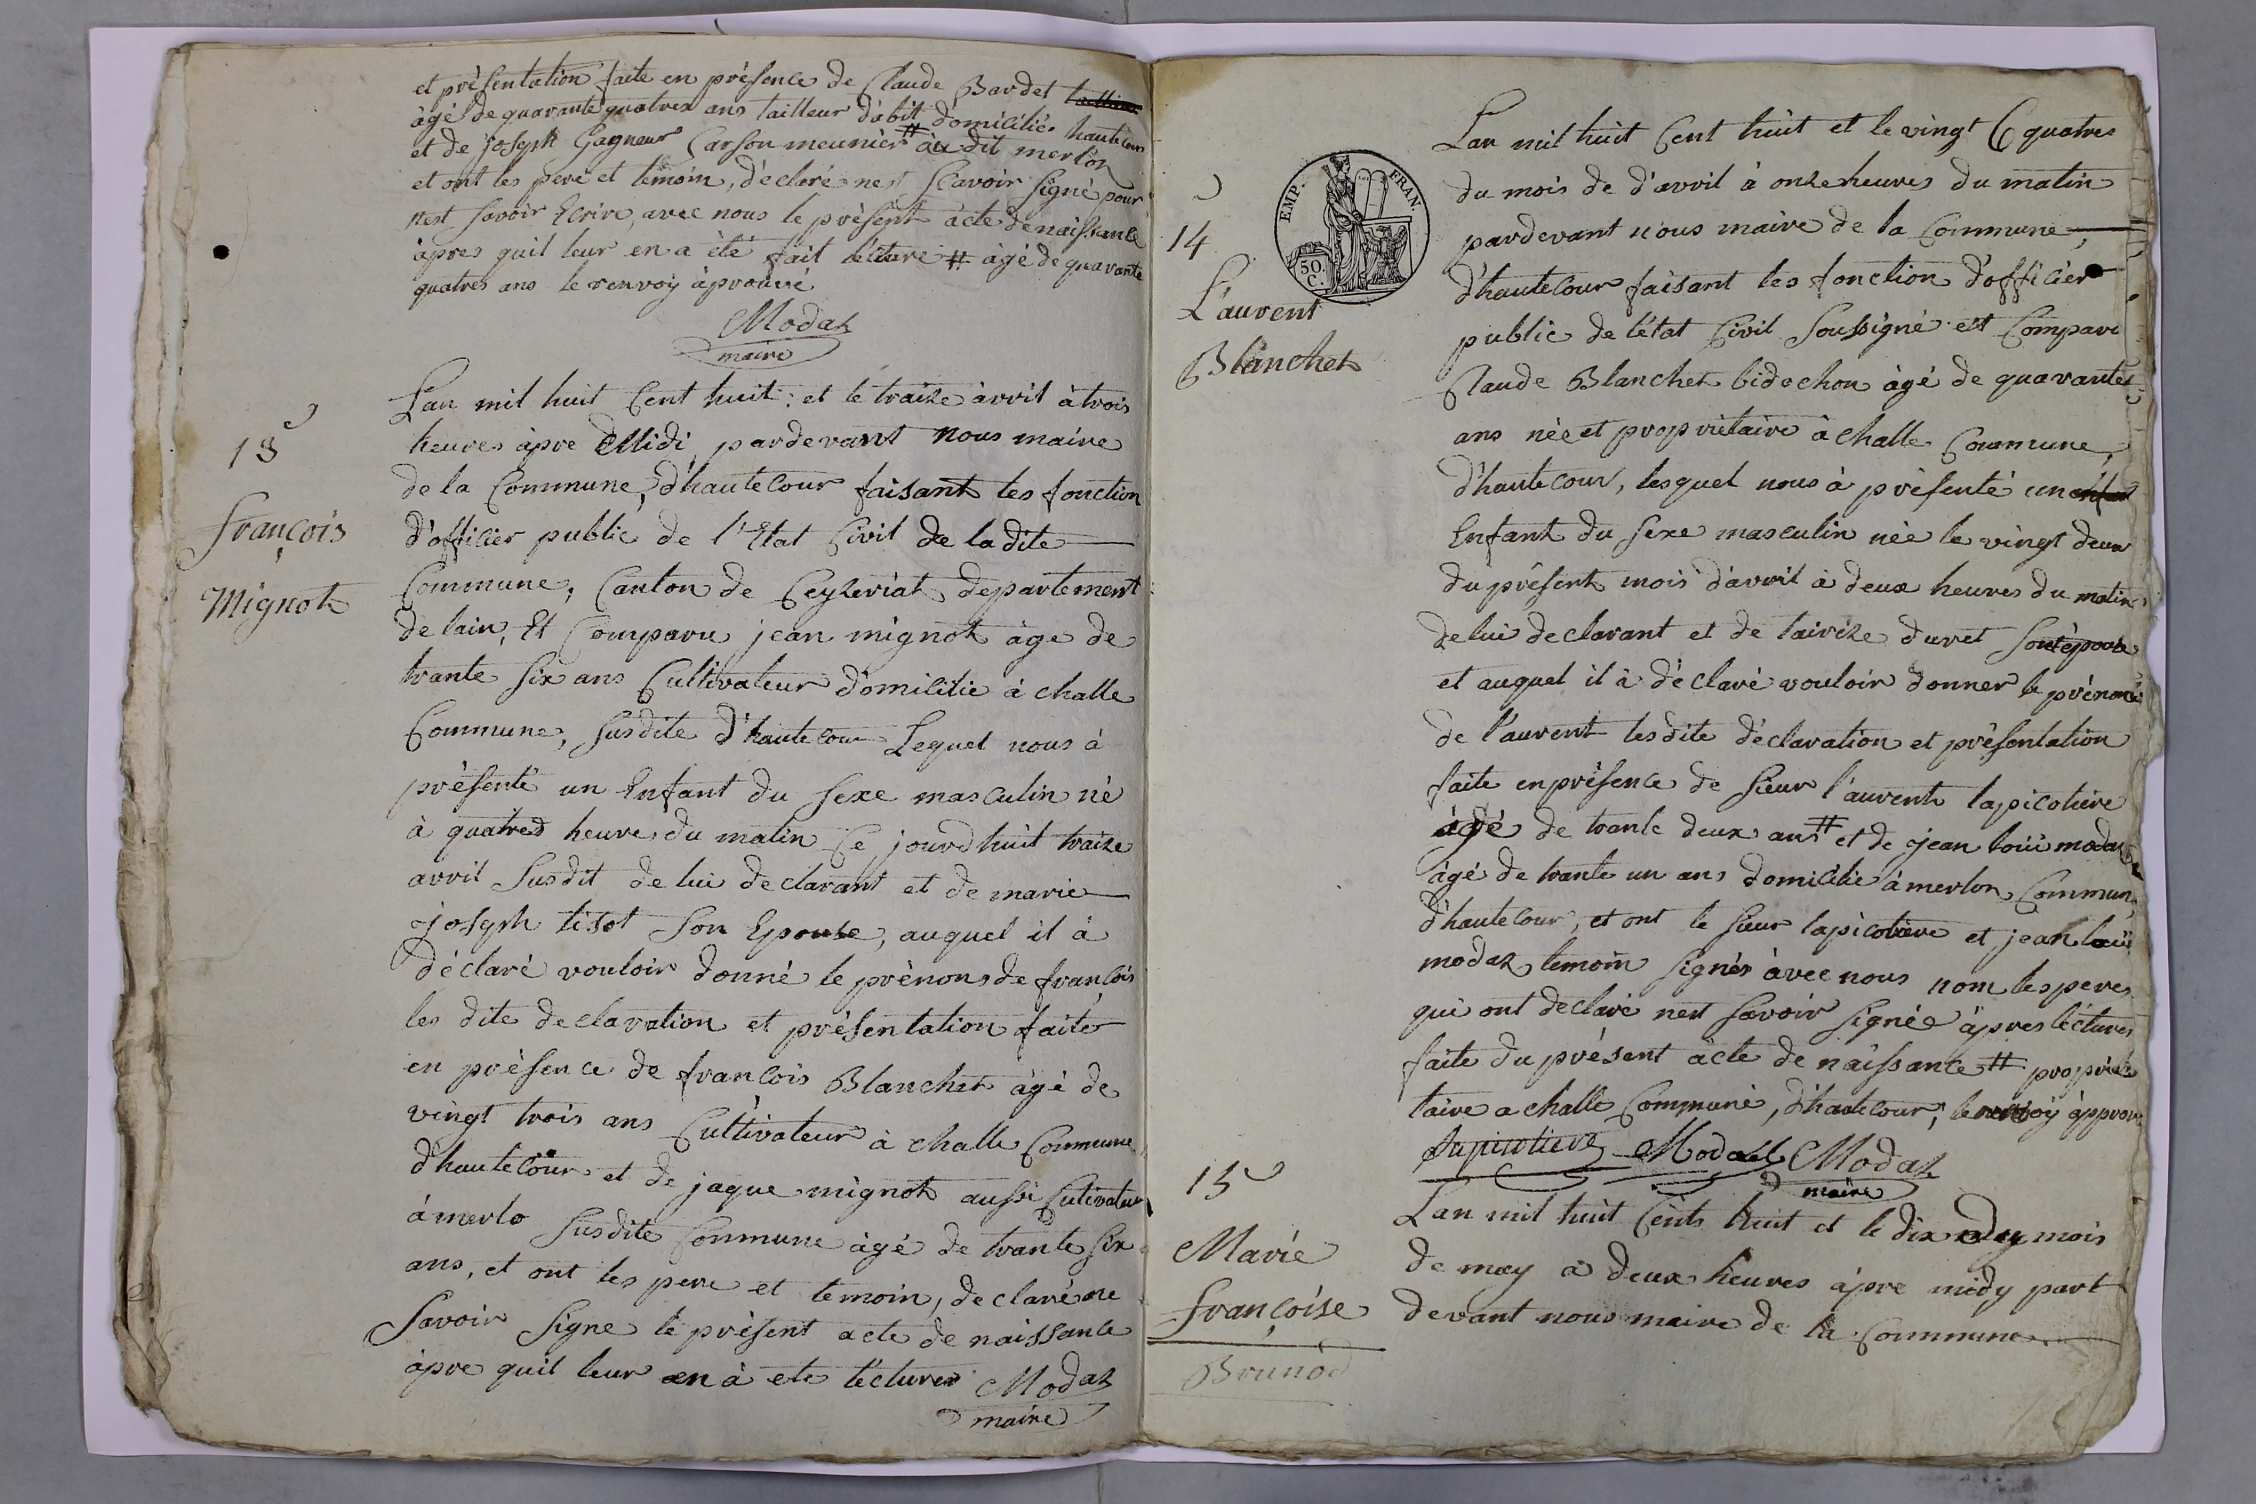 et présentation faite en présence de Claude Bardet
âgé de quarante quatres ans tailleur d'abit domiciliés hautecour
et de joseph Gagneur Garson meunier # au dit merlon
et ont les pere et temoin, déclaré nest scavoir signé pour
nest savoir Ecrire, avec nous le présent acte de naissance
àpres quil leur en a èté fait lecture # âgé de quarante
quatres ans le renvoy àprouvé
Modaz
maire
13
François
Mignot
Lan mil huit Cent huit: et le traize avril à trois
heures àpre Midi, pardevant nous maire
de la Commune, d'hautecour faisant les fonction
d'officier public de l'Etat Civil de la dite
Commune, Canton de Ceyzeriat departement
de lain, Et Comparu jean mignot àge de
trante six ans Cultivateur domicilie à challe
Commune, susdite d'hautecour Lequel nous à
présenté un Enfant du sexe masculin né
à quatres heures du matin Ce jourdhuit traize
avril susdit de lui declarant et de marie
joseph tisot son Epouse, auquel il à
déclaré vouloir donné le prénons de francois
les dite declaration et présentation faite
en présence de francois Blanchet àgé de
vingt trois ans Cultivateur à challe Commune
d'hautecour et de jaque mignot aussi Cutivateur
à merlo susdite Commune àgé de trante six
ans, et ont les pere et temoin, declaré ne
savoir signe le présent acte de naissance
àpre quil leur en à ete lécture Modaz
maire
EMP. FRAN.
50. C.
14
L'aurent
Blanchet
Lan mil huit Cent huit et le vingt quatres
du mois de d'avril à onze heures du matin
pardevant nous maire de la Commune
d'hautecour faisant les fonction d'officier
public de l'état Civil soussigné est Comparu
Claude Blanchet bidochon àgé de quarantes
ans née et propriétaire à challe Commune,
d'hautecour, lesquel nous à présenté un
Enfant du sexe masculin née le vingt deux
du présent mois d'avril à deux heures du matin
de lui declarant et de tairèze duret son épouse
et auquel il à déclaré vouloir donner le prénom
de l'aurent lesdite déclaration et présentation
faite en présence de sieur l'aurent lapicotiere
àgé de trante deux ans # et de jean loüi modaz
âgé de trante un ans domicilié à merlon Commune
d'hautecour, et ont le sieur lapicotiere et jean loüi
modaz temoin signés àvec nous nom les peres
qui ont declaré nest savoir signée àpres léctures
faite du présent àcte de naissance # proprié
taire a challe Commune, d'hautecour, le renvoy àpprouvé
Lapicotiere Modaz Modaz
maire
15
Marie
françoise
Brunod
Lan mil huit Cents huit et le dix du mois
de may à deux heures àpre midy part
devant nous maire de la Commune